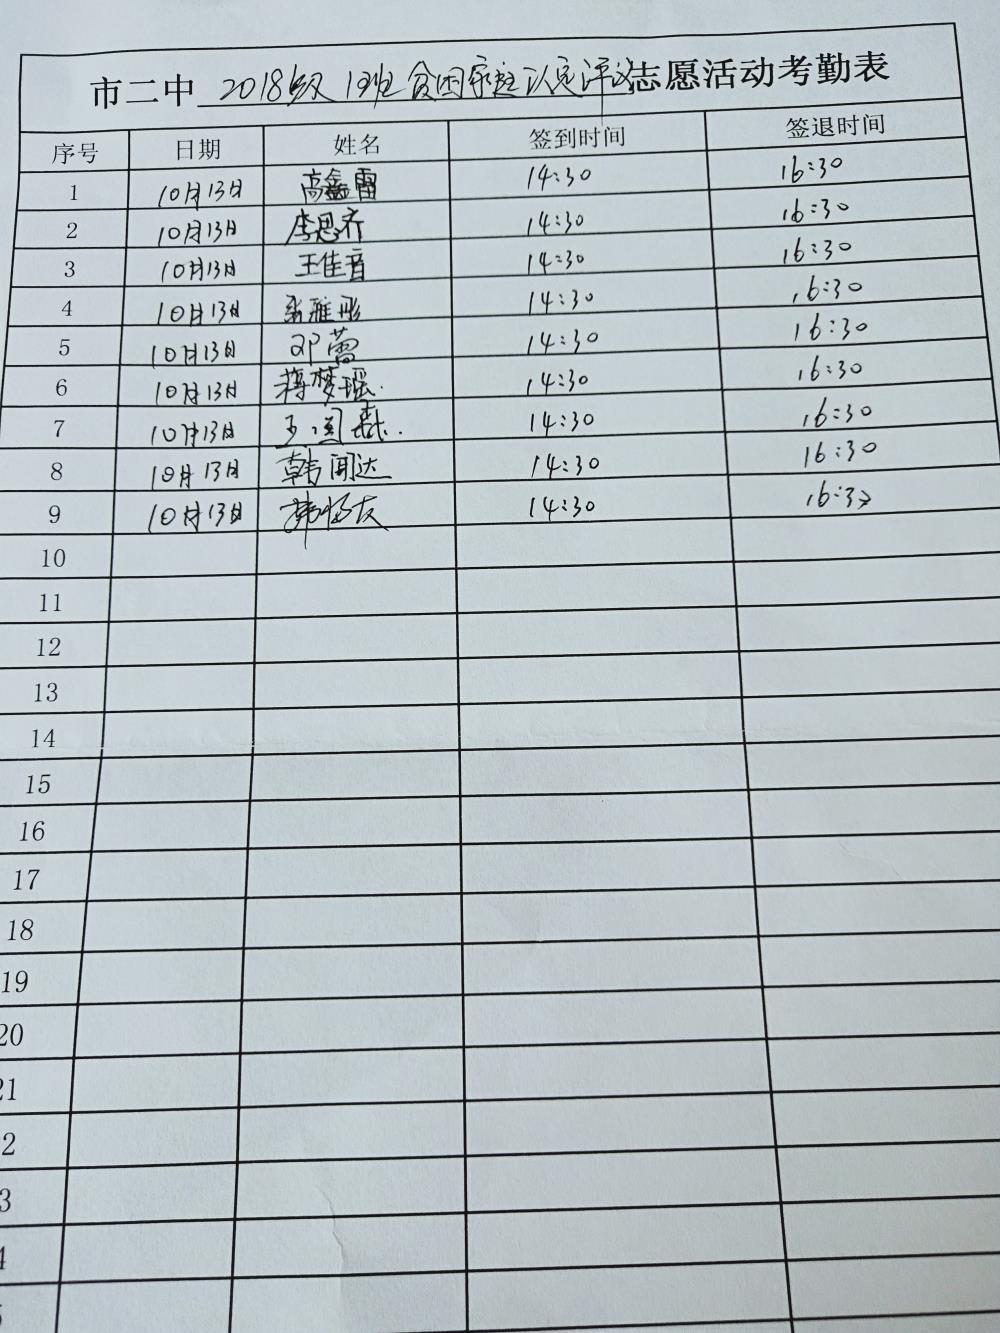 市二中 2018级 1班贫困家庭认定评议志愿活动考勤表
序号 日期 姓名 签到时间 签退时间
1 10月13日 高鑫雷 14:30 16:30
2 10月13日 李思齐 14:30 16:30
3 10月13日 王佳音 14:30 16:30
4 10月13日 雅彤 14:30 16:30
5 10月13日 邓蕾 14:30 16:30
6 10月13日 蒋梦瑶. 14:30 16:30
7 10月13日 王 14:30 16:30
8 10月13日 韩闻达 14:30 16:30
9 10月13日 14:30 16:30
10
11
12
13
14
15
16
17
18
19
20
21
2
3
4